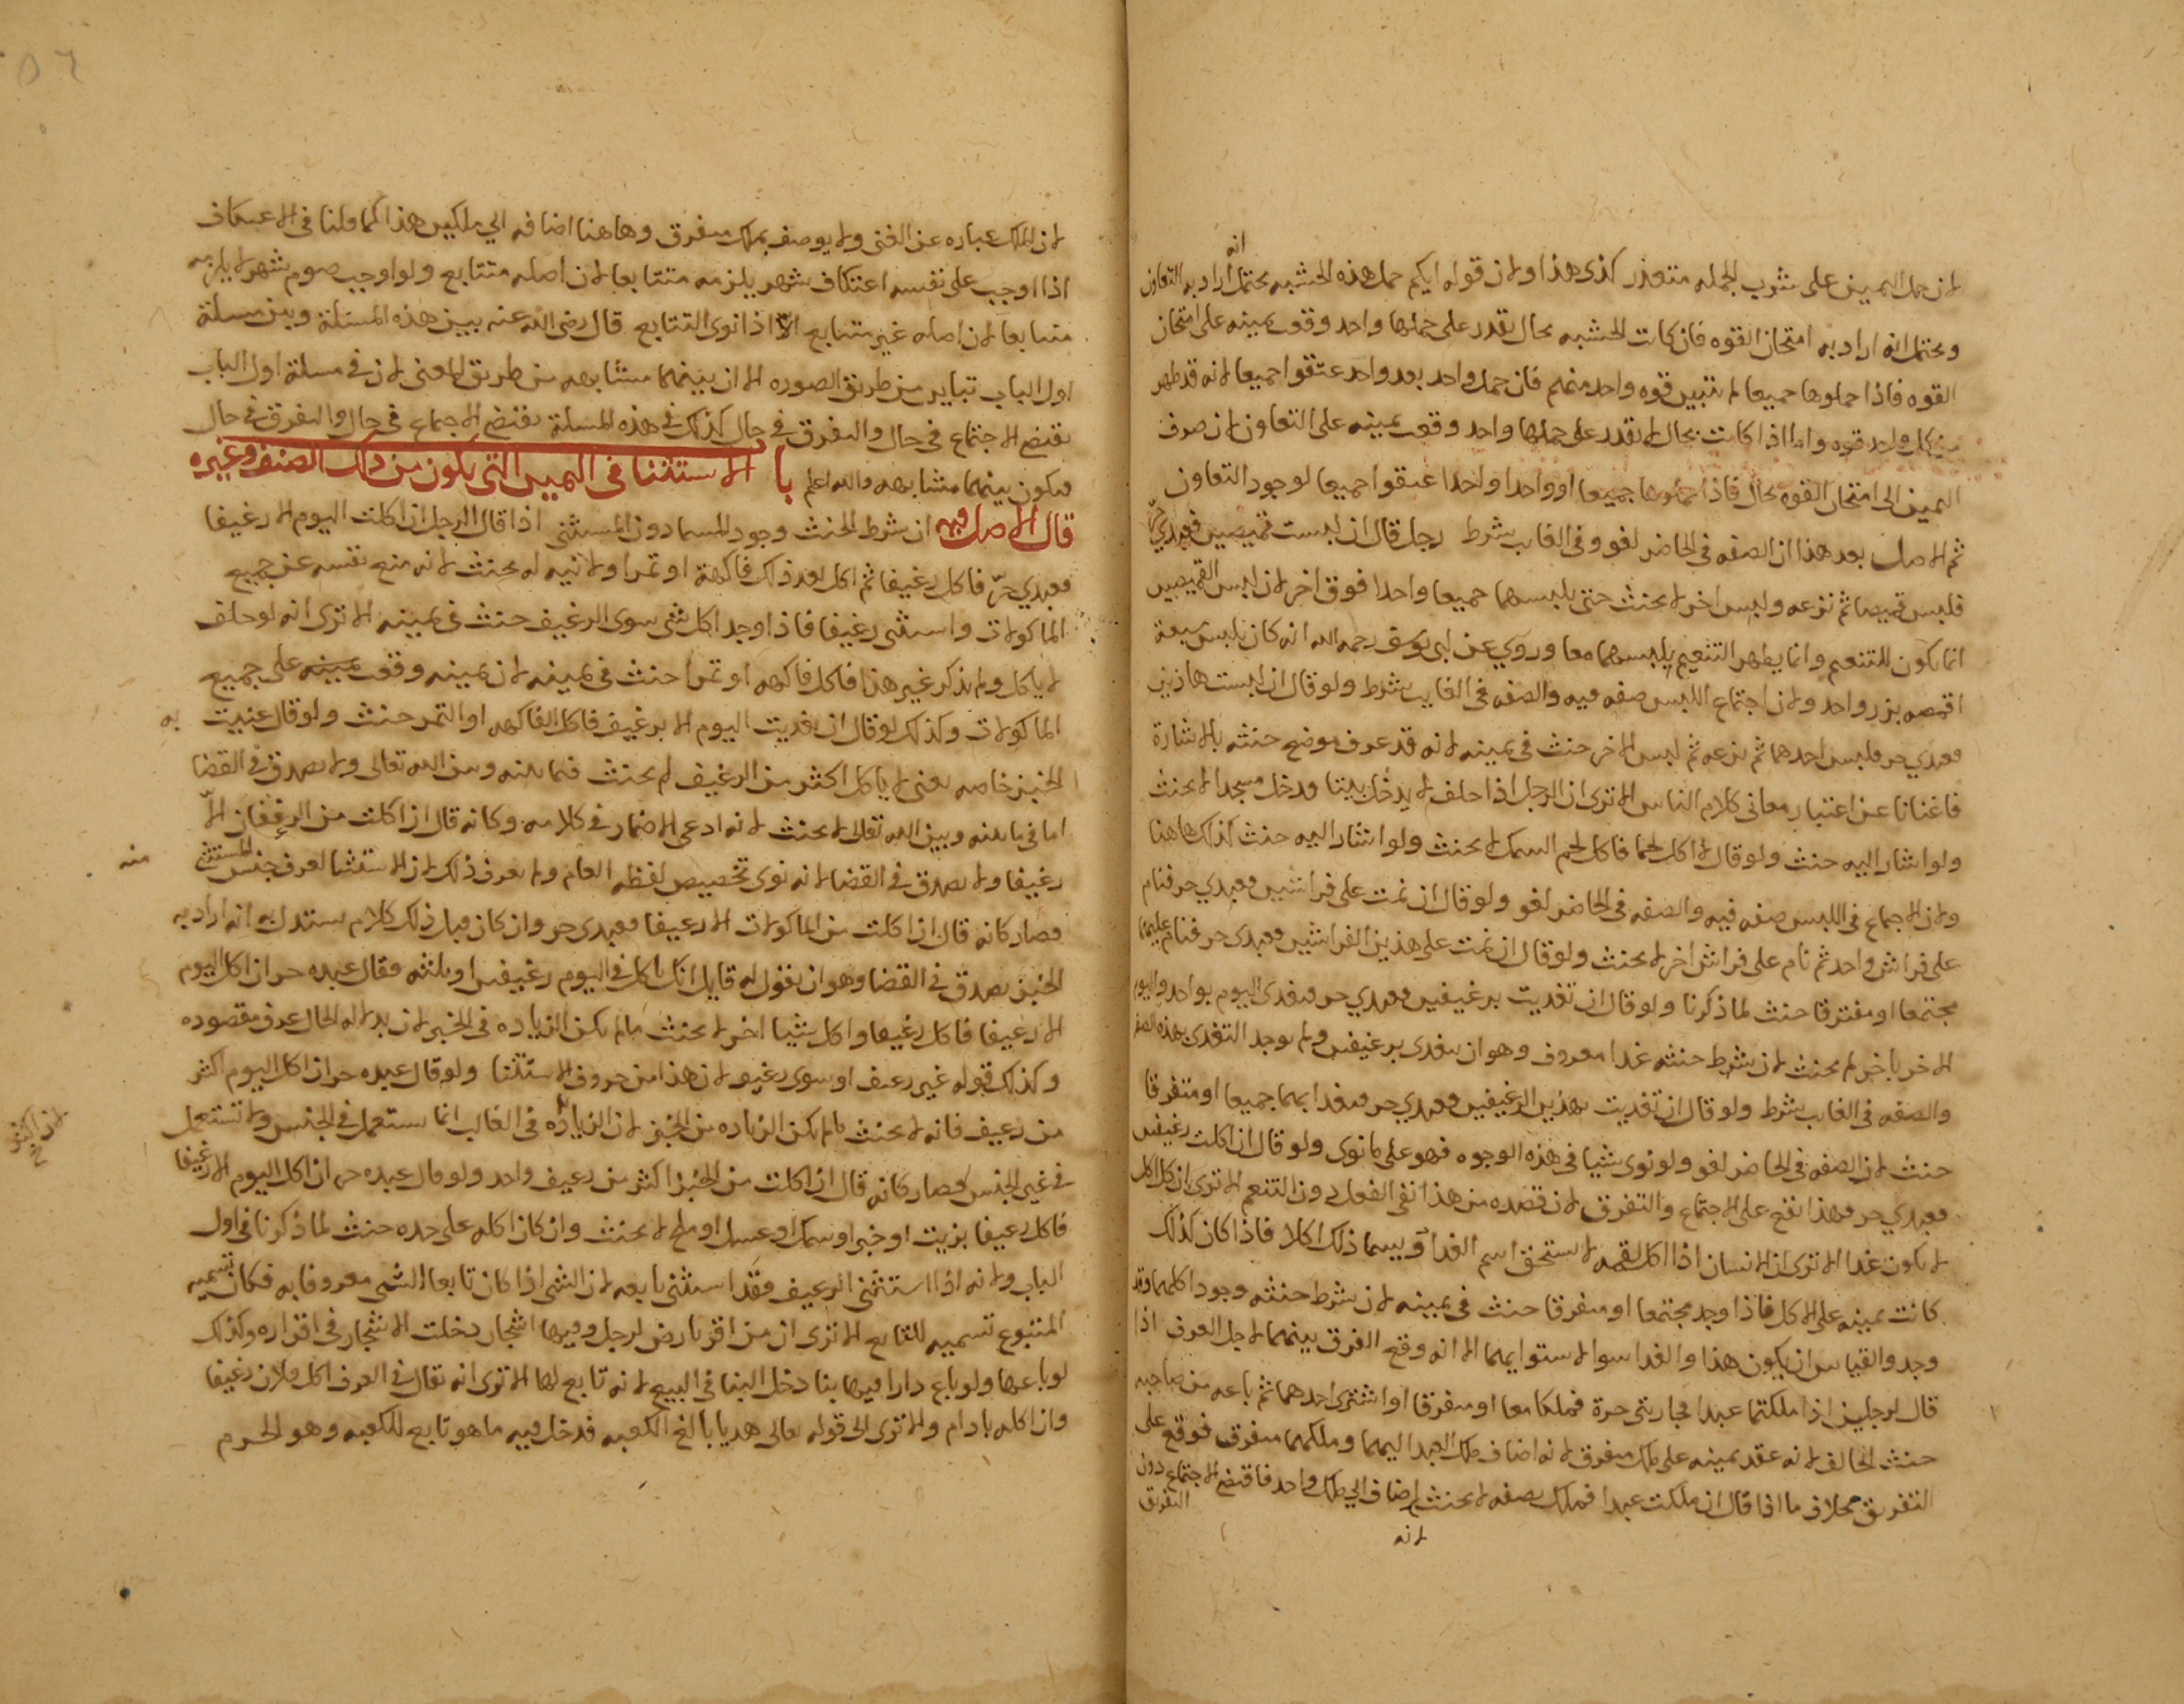 انه
لان حمل اليمين على شرب الجمله متعذر كذى هذا ولان قوله ايكم حمل هذه الخشبه يحتمل اراد به التعاون
ويحتمل انه اراد به امتحان القوه فان كانت الخشبه بحال يقدر على حملها واحد وقعت يمينه على امتحان
القوه فاذا حملوها جميعا لم يتبين قوه واحد منهم فان حمل واحد بعد واحد عتقوا جميعا لانه قد ظهر
من كل واحد قوه واما اذا كانت بحال لا يقدر على حملها واحد وقعت يمينه على التعاون لان صرف
اليمين الى امتحان القوه محال فاذا حملوها جميعا او واحدا واحدا عتقوا جميعا لوجود التعاون
ثم الاصل بعد هذا ان الصفه فى الحاضر لغو وفى الغايب شرط رجل قال ان لبست قميصين فعبدي حر
فلبس قميصا ثم نزعه ولبس اخر لا يحنث حتى يلبسهما جميعا واحدا فوق اخر لان لبس القميصين
انما يكون للتنعم وانما يظهر التنعم بلبسهما معا وروي عن ابى يوسف رحمه الله انه كان يلبس سبعة
اقمصه بزر واحد ولان اجتماع اللبس صفه فيه والصفه فى الغايب شرط ولو قال ان لبست هاذين
فعبدي حر فلبس احدهما ثم نزعه ثم لبس الاخر حنث فى يمينه لانه قد عرف موضع حنثه بالاشارة
فاغنانا عن اعتبار معانى كلام الناس الا ترى ان الرجل اذا حلف لا يدخل بيتا فدخل مسجدا لا يحنث
ولو اشار اليه حنث ولو قال لا اكل لحما فاكل لحم السمك لا يحنث ولو اشار اليه حنث كذلك هاهنا
ولان الاجتماع فى اللبس صفه فيه والصفه فى الحاضر لغو ولو قال ان نمت على فراشين فعبدي حر فنام
على فراش واحد ثم نام على فراش اخر لا يحنث ولو قال ان نمت على هذين الفراشين فعبدى حر فنام عليهما
مجتمعا او مفترقا حنث لما ذكرنا ولو قال ان تغديت برغيفين فعبدي حر فتغدى اليوم بواحد واليوم
الاخر باخر لم يحنث لان شرط حنثه غدا معروف وهو ان يتغدى برغيفين ولم يوجد التغدى بهذه الصفه
والصفه فى الغايب شرط ولو قال ان تغديت بهذين الرغيفين فعبدي حر فتغدا بهما جميعا او متفرقا
حنث لان الصفه فى الحاضر لغو ولو نوى شيا فى هذه الوجوه فهو على ما نوى ولو قال ان اكلت رغيفين
فعبدي حر فهذا نقع على الاجتماع والتفرق لان قصده من هذا نفى الفعل دون التنعم الا ترى ان كل اكل
لا يكون غدا الا ترى ان الانسان اذا اكل لقمه لا يستحق اسم الغدا ويسما ذلك اكلا فاذا كان كذلك
كانت يمينه على الاكل فاذا وجد مجتمعا او متفرقا حنث فى يمينه لان شرط حنثه وجود اكلهما وقد
وجد والقياس ان يكون هذا والغدا سوا لاستوايهما الا انه وقع الفرق بينهما لاجل العرف اذا
قال لرجلين اذا ملكتما عبدا فجاريتى حرة فملكا معا او متفرقا او اشترى احدهما ثم باعه من صاحبه
حنث الحالف لانه عقد يمينه على ملك متفرق لانه اضاف ملك العبد اليهما وملكهما متفرق فوقع على
التفريق بخلاف ما اذا قال ان ملكت عبدا فملك نصفه لا يحنث اضاف الى ملك واحد فاقتضى الاجتماع دون
التفريق
لانه
لان الملك عباره عن الغنى ولا يوصف بملك متفرق وهاهنا اضافه الى ملكين هذا كما قلنا فى الاعتكاف
اذا اوجب على نفسه اعتكاف شهر يلزمه متتابعا لان اصله متتابع ولو اوجب صوم شهر لا يلزمه
متتابعا لان اصله غير متتابع الا اذا نوى التتابع قال رضى الله عنه بين هذه المسئلة وبين مسلة
اول الباب تباين من طريق الصوره الا ان بينهما مشابهه من طريق المعنى لان فى مسلة اول الباب
يقتضى الاجتماع فى حال والتفرق فى حال كذلك فى هذه المسلة يقتضى الاجتماع فى حال والتفرق فى حال
فيكون بينهما مشابهه والله اعلم باب الاستثنا فى اليمين التى يكون من ذلك الصنف وغيره
قال الاصل فيه ان شرط الحنث وجود المسما دون المستثنى اذا قال الرجل ان اكلت اليوم الا رغيفا
فعبدي حر فاكل رغيفا ثم اكل بعد ذلك فاكهة او تمرا ولا نيه له يحنث لانه منع نفسه عن جميع
الماكولات واستثنى رغيفا فاذا وجد اكل شى سوى الرغيف حنث فى يمينه الا ترى انه لو حلف
لا ياكل ولم يذكر غير هذا فاكل فاكهه او تمرا حنث فى يمينه لان يمينه وقعت يمينه على جميع
الماكولات وكذلك لو قال ان تغديت اليوم الا برغيف فاكل الفاكهه او التمر حنث ولو قال عنيت به
الخبز خاصه يعنى لا ياكل اكثر من الرغيف لم يحنث فيما بينه وبين الله تعالى ولا يصدق فى القضا
اما فى ما بينه وبين الله تعالى لا يحنث لانه ادعى الاضمار فى كلامه وكانه قال ان اكلت من الرغفان الا
رغيفا ولا يصدق فى القضا لانه نوى تخصيص لفظه العام ولم يعرف ذلك لان الاستثنا لعرف جنس المستثنى منه
فصار كانه قال ان اكلت من الماكولات الا رغيفا فعبدى حر وان كان قبل ذلك كلام يستدل به انه اراد به
الخبز يصدق فى القضا وهو ان يقول له قايل انك تاكل فى اليوم رغيفين او ثلثه فقال عبده حر ان اكل اليوم
الا رغيفا فاكل رغيفا واكل شيا اخر لا يحنث مالم يكن الزياده فى الخبز لان بدلاله الحال عرف مقصوده
وكذلك قوله غير رغيف او سوى رغيف لان هذا من حروف الاستثنا ولو قال عبده حر ان اكل اليوم اكثر
من رغيف فانه لا يحنث مالم يكن الزياده من الخبز لان الزياده فى الغالب انما يستعمل فى الجنس ولا تستعمل
فى غير الجنس فصار كانه قال ان اكلت من الخبز اكثر من رغيف واحد ولو قال عبده حر ان اكل اليوم الا رغيفا
فاكل رغيفا بزيت او خبز او سمك او عسل او ملح لا يحنث وان كان اكله على حده حنث لما ذكرنا فى اول
الباب ولانه اذا استثنى الرغيف فقد استثنى تابعه لان الشى اذا كان تابعا لشى معروفا به فكان تسميه
المتبوع تسميه للتابع الا ترى ان من اقر بارض لرجل وفيها اشجار دخلت الاشجار فى اقراره وكذلك
لو باعها ولو باع دارا فيها بنا دخل البنا فى البيع لانه تابع لها الا ترى انه يقال فى العرف اكل فلان رغيفا
وان اكله بادام والا ترى الى قوله تعالى هديا بالغ الكعبه فدخل فيه ما هو تابع للكعبه وهو الحرم